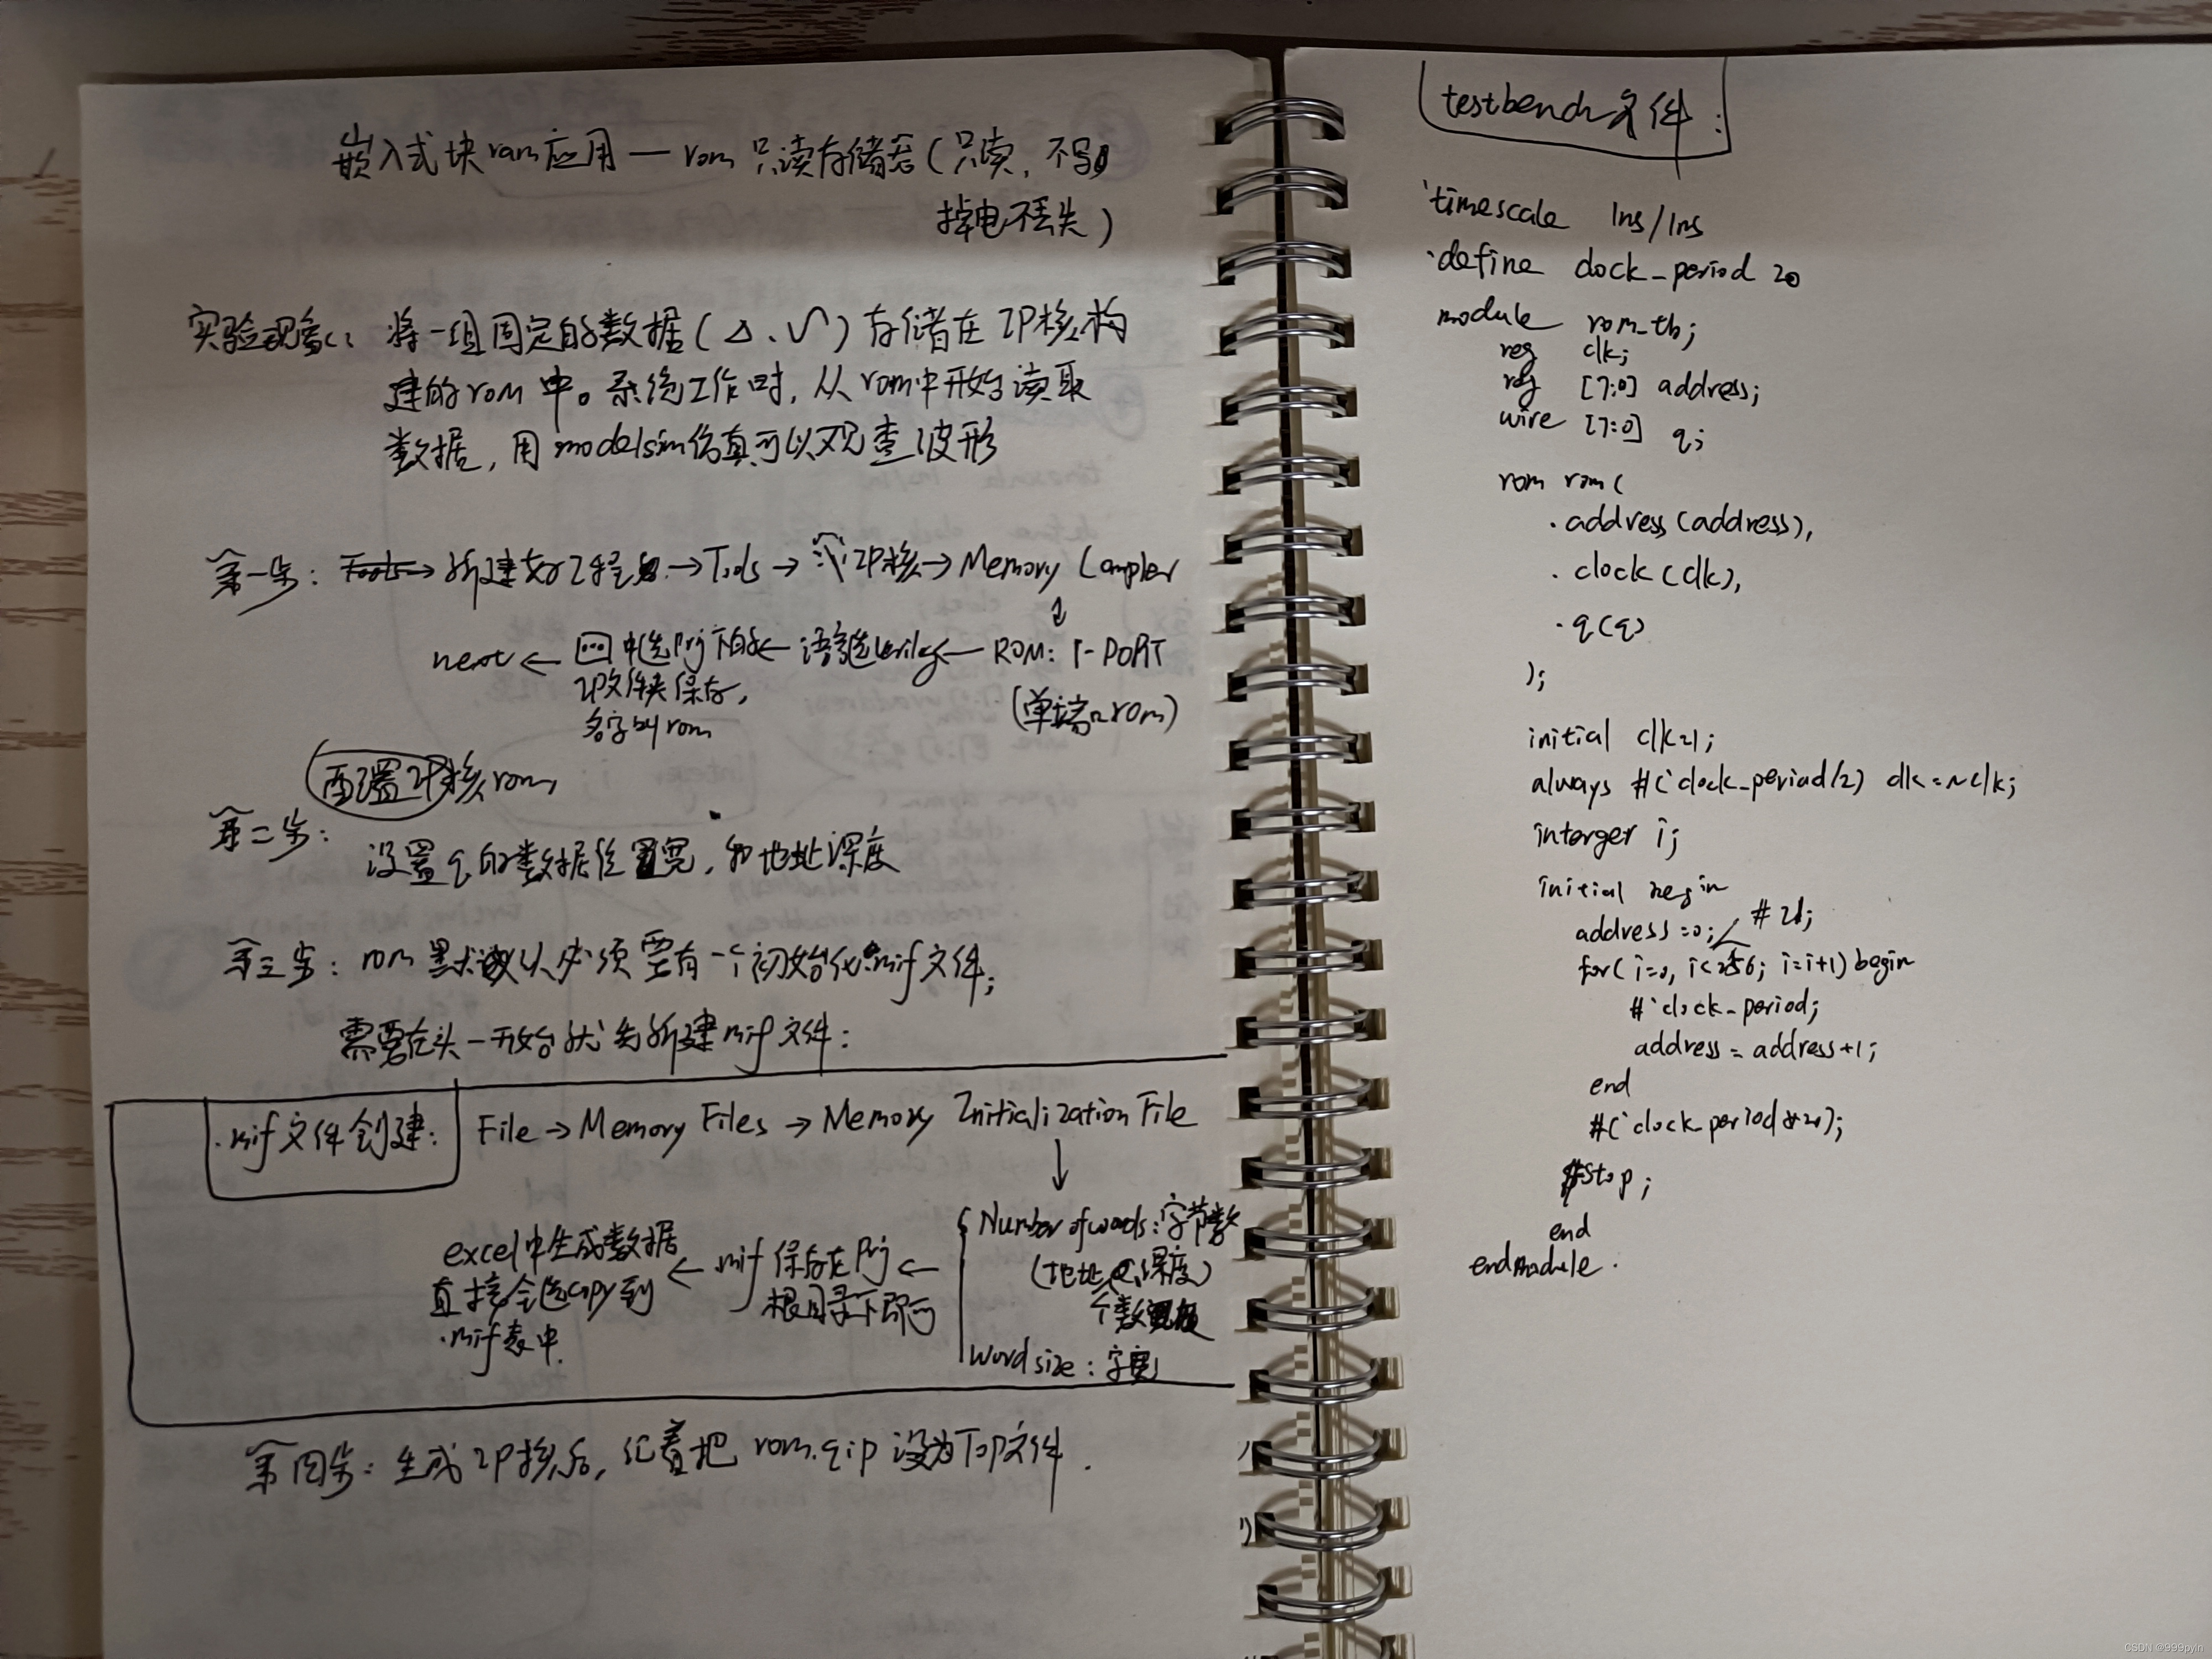 嵌入式块ram应用 — rom 只读存储器（只读，不写
掉电不丢失）
实验现象： 将一组固定的数据（△、∿）存储在IP核构
建的rom中。系统工作时，从rom中开始读取
数据，用modelsim仿真可以观查波形
第一步： 新建好工程 → Tools → IP核 → Memory Compler
↓
next ← ... 中选Prj下的 ← 语言选Verilog ← ROM: 1-PORT
IP文件夹保存，
名字by rom
(单端口rom)
配置IP核rom
第二步：
设置q的数据位宽，和地址深度
第三步：rom默认必须要有一个初始化.mif文件；
需要在头一开始就先新建mif文件：
.mif文件创建： File → Memory Files → Memory Initialization File
↓
Number of words：字节数
(地址深度)
个数
Word size：字宽
← mif 保存在Prj ←
根目录下即可
excel中生成数据
直接全选copy到
.mif表中.
第四步：生成IP核后，记着把 rom.qip 设为Top文件.
testbench文件：
`timescale 1ns/1ns
`define clock_period 20
module rom_tb;
reg clk;
reg [7:0] address;
wire [7:0] q;
rom rom(
.address(address),
.clock(clk),
.q(q)
);
initial clk=1;
always #(`clock_period/2) clk=~clk;
interger i;
initial begin
address=0; #21;
for(i=0, i<256; i=i+1) begin
#`clock_period;
address = address+1;
end
#(`clock_period*20);
$stop;
end
endmodule.
CSDN @999pyln